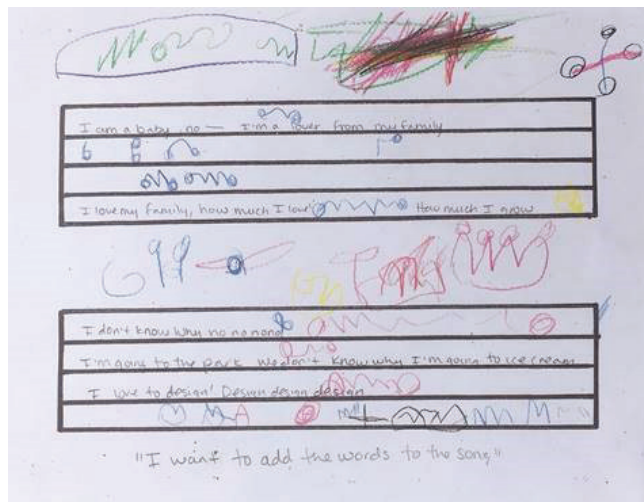 I am a baby no — I'm a lover from my family
I love my family, how much I love How much I grow
I don't know why no no nono
I'm going to the park We don't know why I'm going to ice cream
I love to design! Design design design
"I want to add the words to the song"